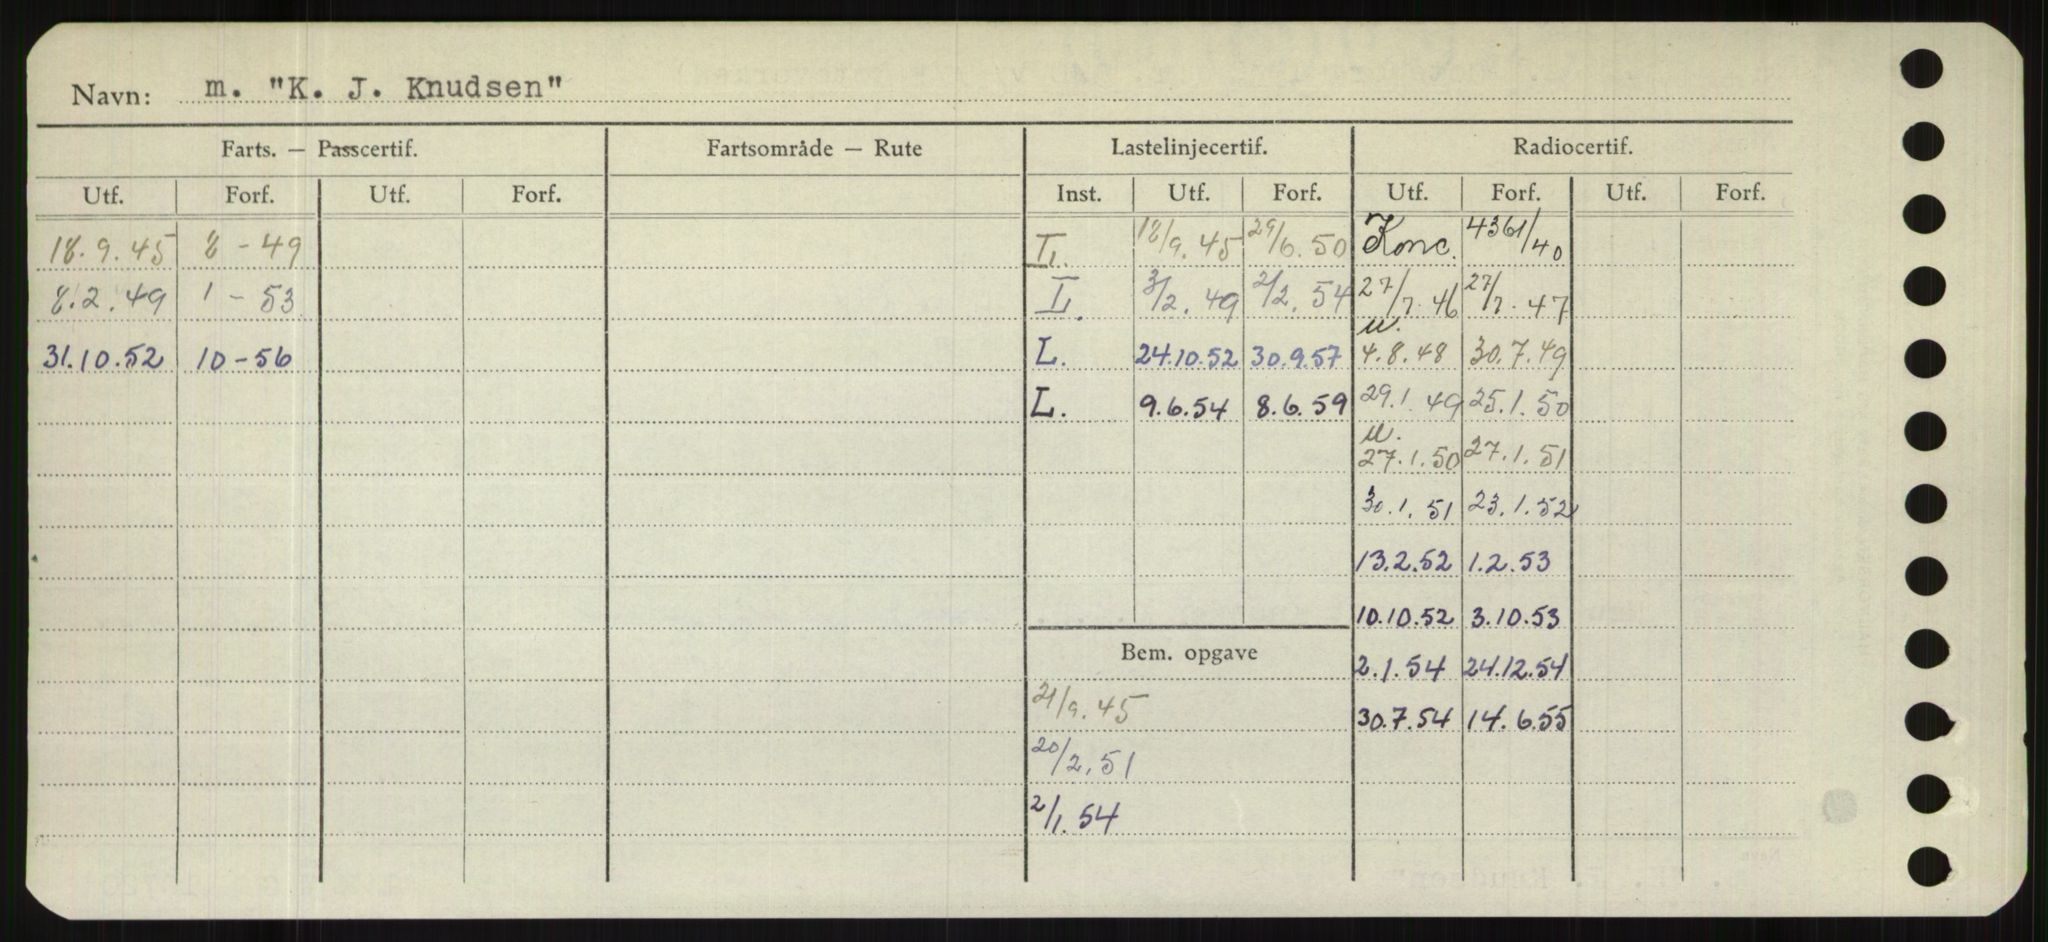 Navn: m. "K. J. Knudsen"
Farts. — Passcertif. Fartsområde — Rute Lastelinjecertif. Radiocertif.
Utf. Forf. Utf. Forf. Inst. Utf. Forf. Utf. Forf. Utf. Forf.
18.9.45 8-49 L. 18/9.45 29/6.50 Konc. 4361/40
8.2.49 1-53 L. 3/2.49 2/2.54 27/7.46 27/7.47
31.10.52 10-56 L. 24.10.52 30.9.57 u. 4.8.48 30.7.49
L. 9.6.54 8.6.59 29.1.49 25.1.50
u. 27.1.50 27.1.51
30.1.51 23.1.52
13.2.52 1.2.53
10.10.52 3.10.53
Bem. opgave 2.1.54 24.12.54
21/9.45 30.7.54 14.6.55
20/2.51
2/1.54